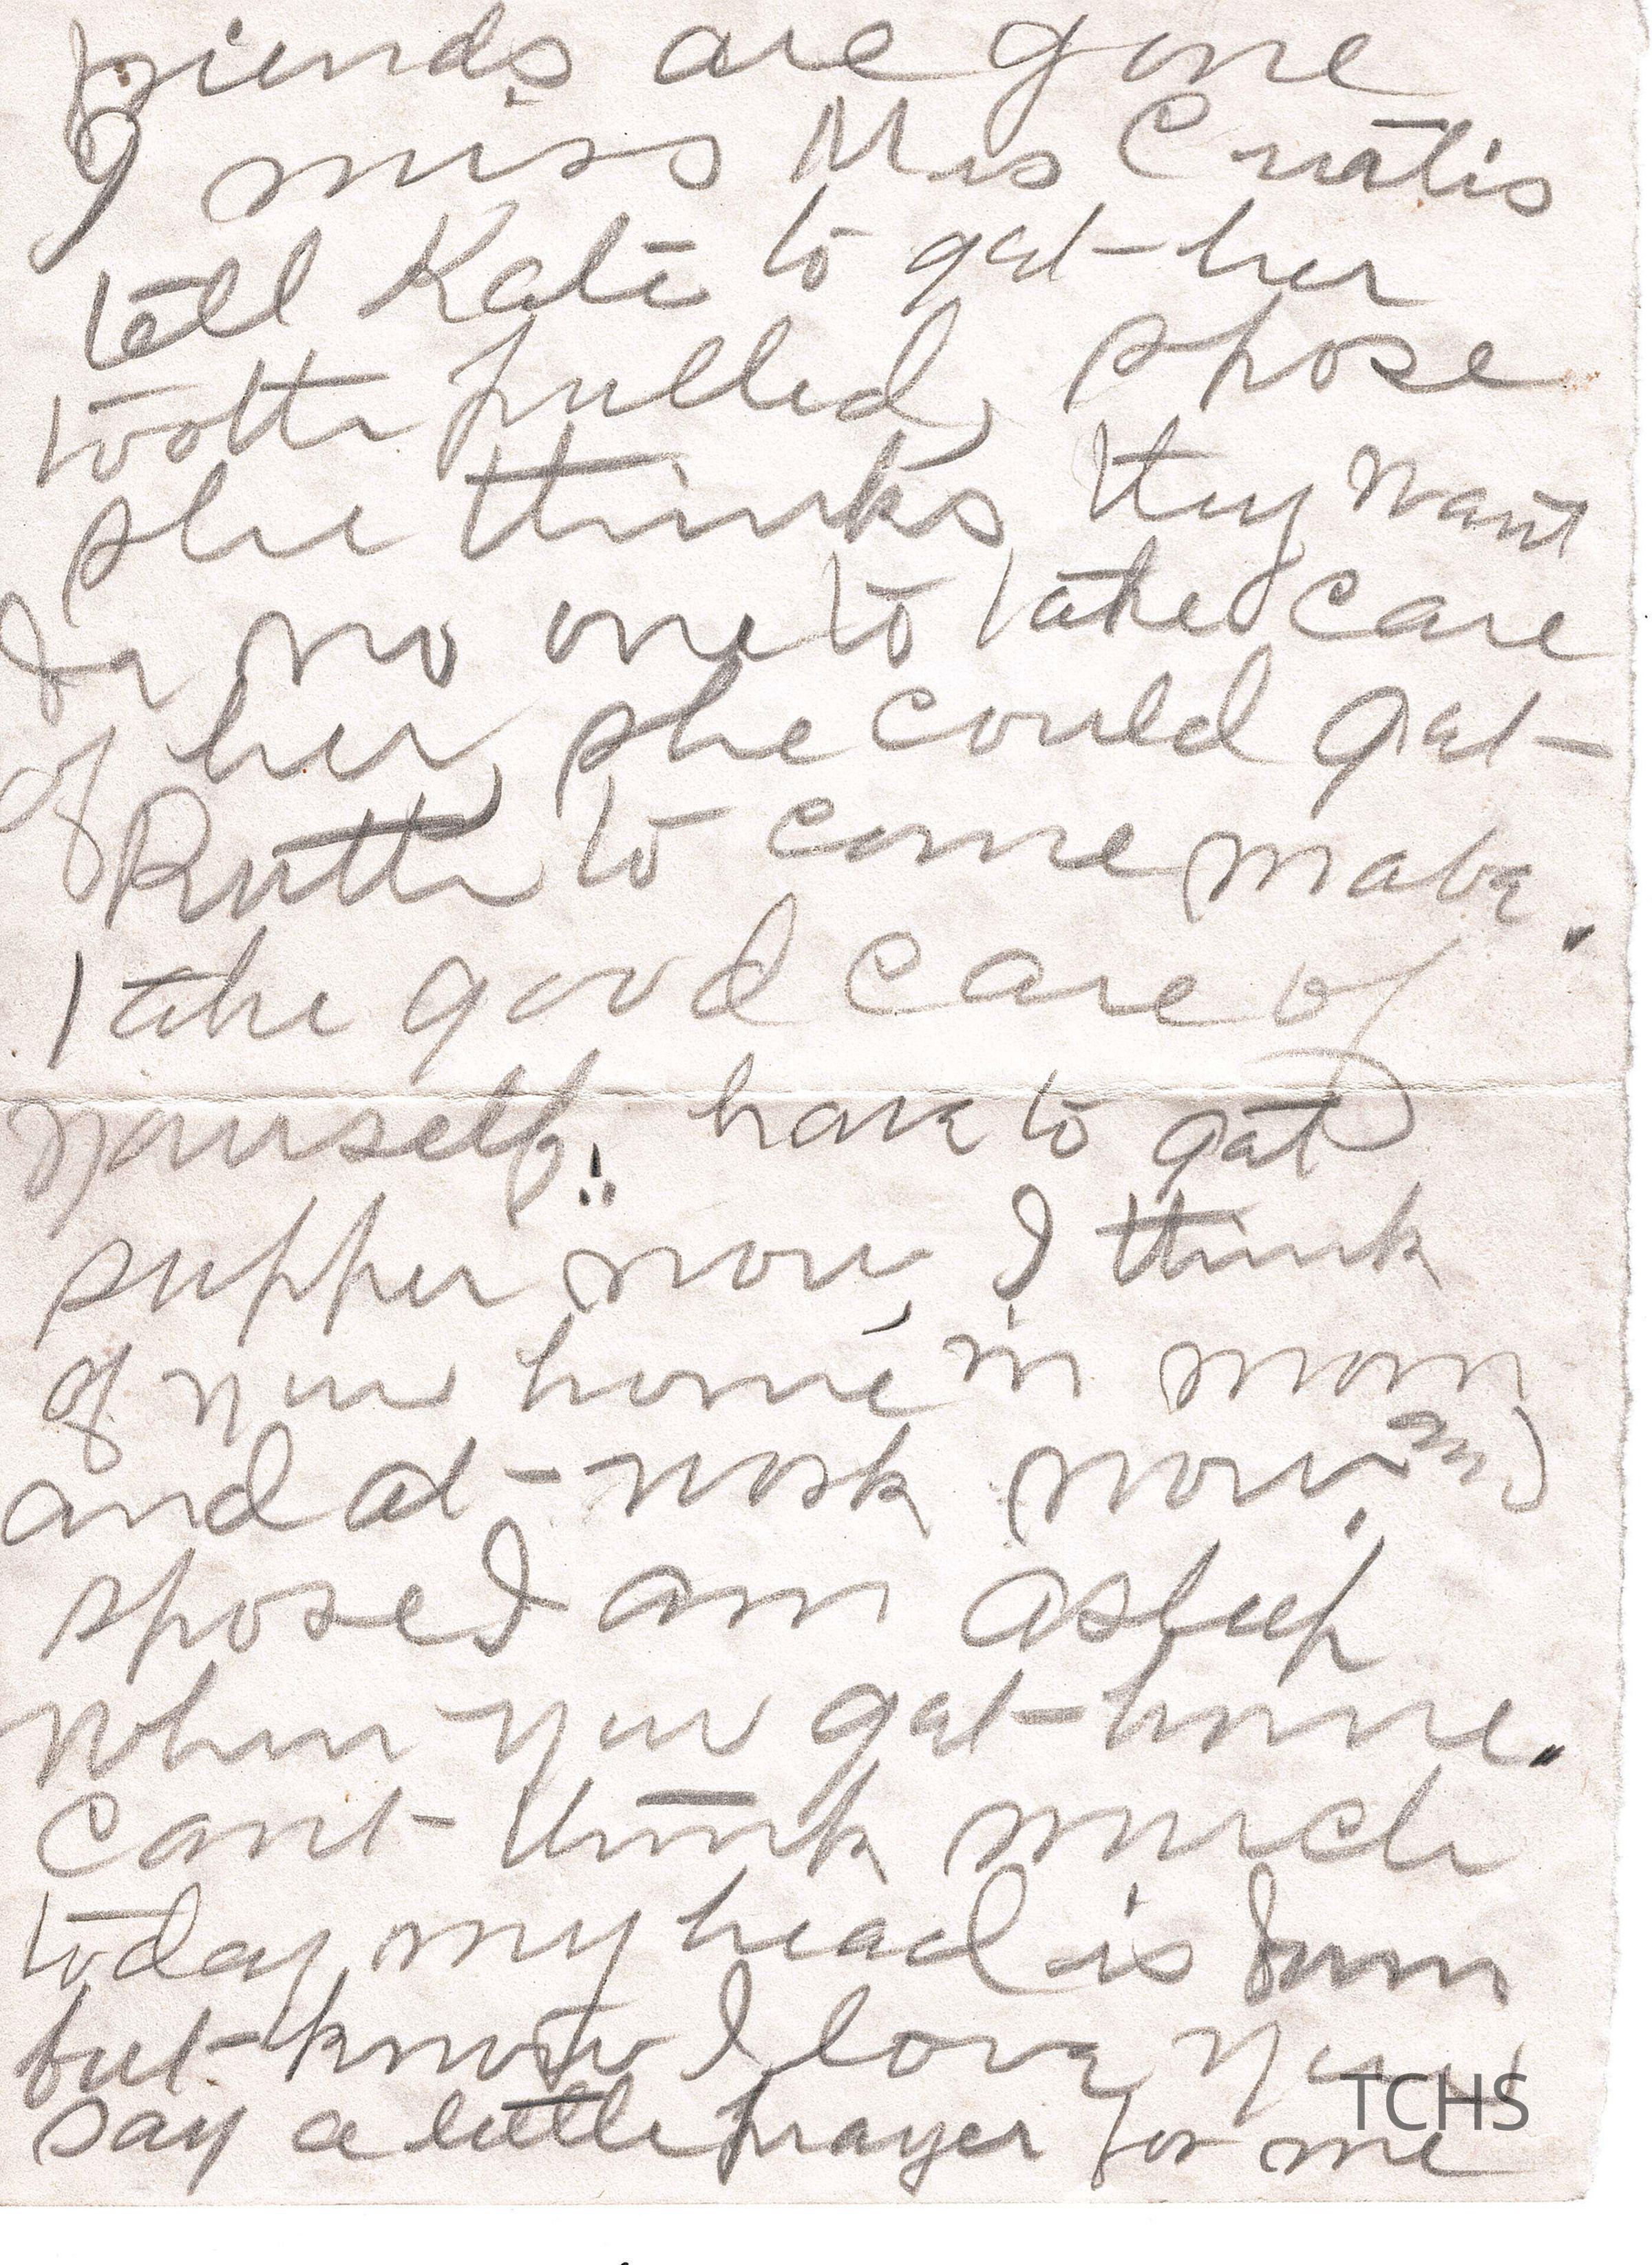 friends are gone
I miss Mrs Curtis
tell Kate to get her
tooth pulled, spose
she thinks they want
no one to take care
of her, she could get
Ruth to come mabe.
take good care of
yourself! have to get
supper now, I think
of you home in morn
and at work now, and
spose I am asleep
when you get home.
Cant think much
today my head is dum
but know I love you
say a little prayer for me
TCHS